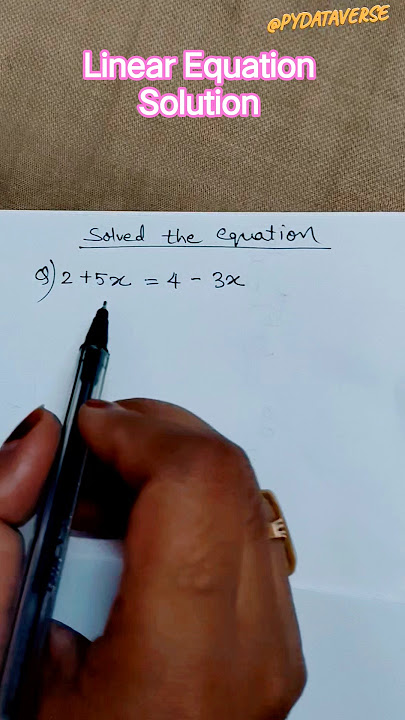 @PYDATAVERSE
Linear Equation
Solution
Solved the equation
Q) 2 + 5x = 4 - 3x